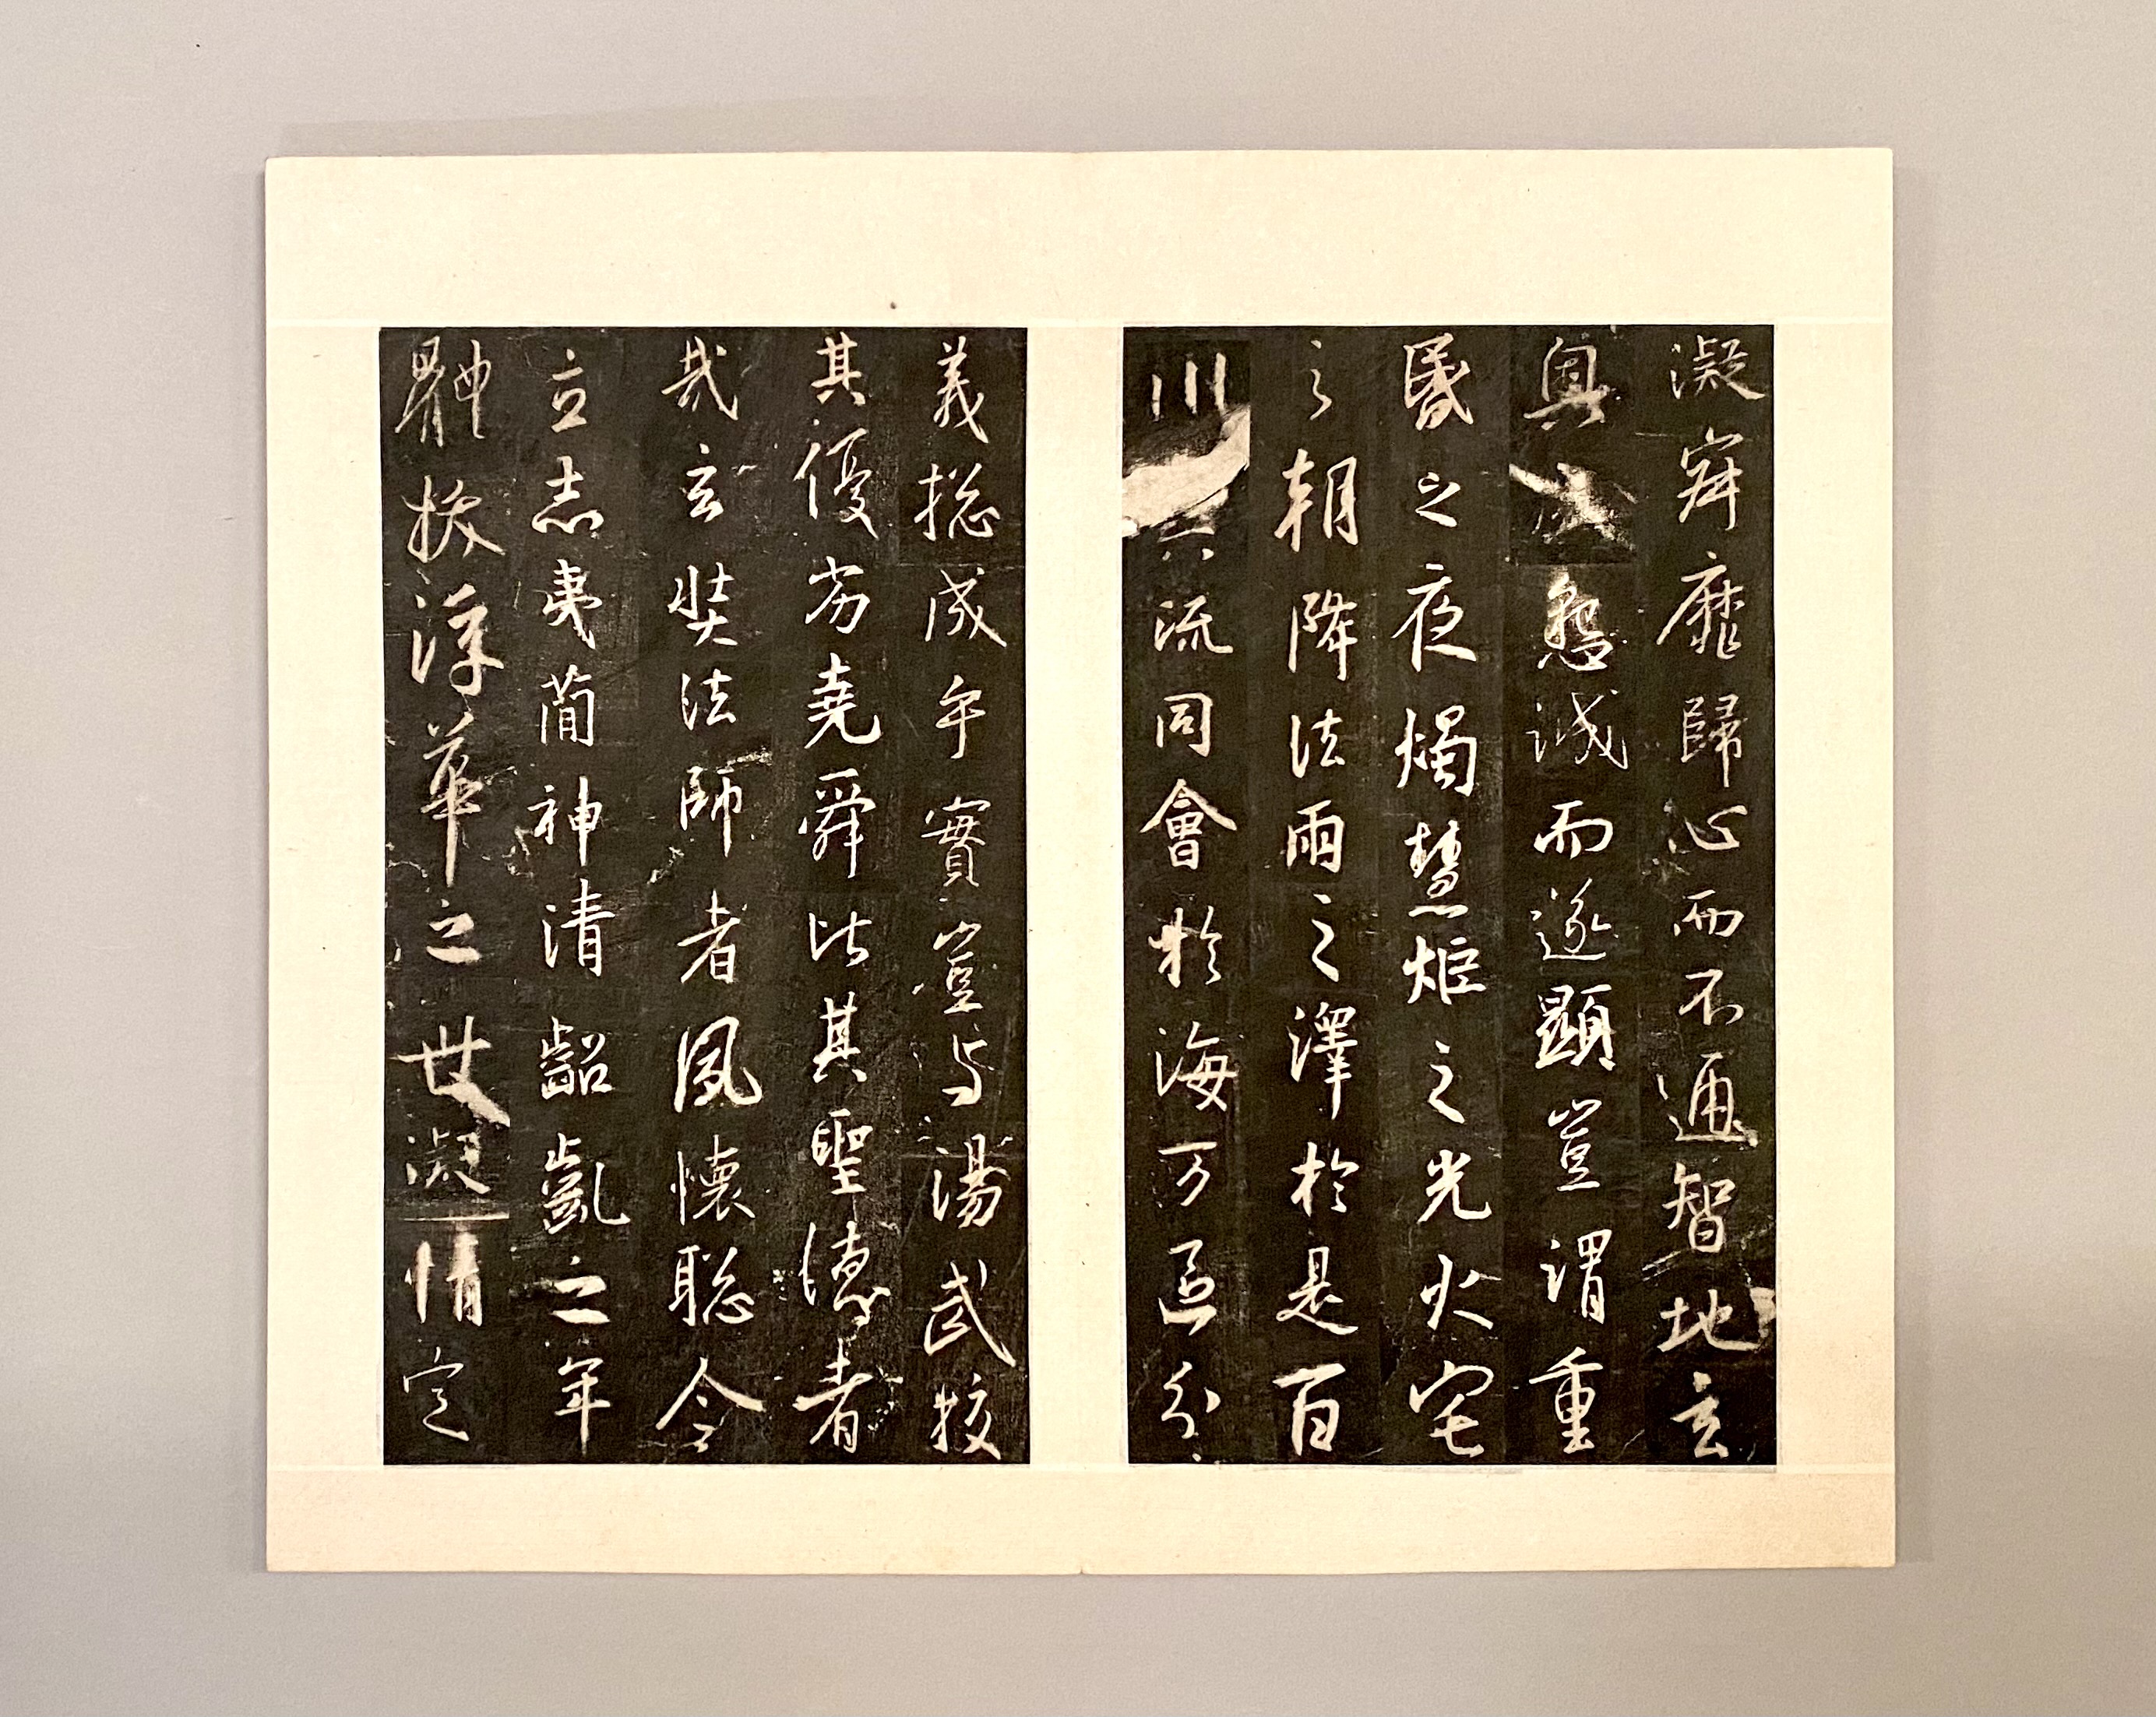 凝寂靡歸心而不通智地玄
奧懇誠而遂顯豈謂重
昏之夜燭慧炬之光火宅
之朝降法雨之澤於是百
川流同會於海万區分
義揔成乎實豈与湯武校
其優劣堯舜比其聖德者
哉玄奘法師者夙懷聡令
立志夷簡神清齠齔之年
體拔浮華之世凝情定